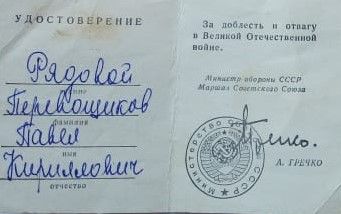 УДОСТОВЕРЕНИЕ
Рядовой
Перевощиков
фамилия
Павел
имя
Кириллович
отчество
За доблесть и отвагу
в Великой Отечественной
войне.
Министр обороны СССР
Маршал Советского Союза
Гречко.
А. ГРЕЧКО
МИНИСТЕРСТВО
СССР